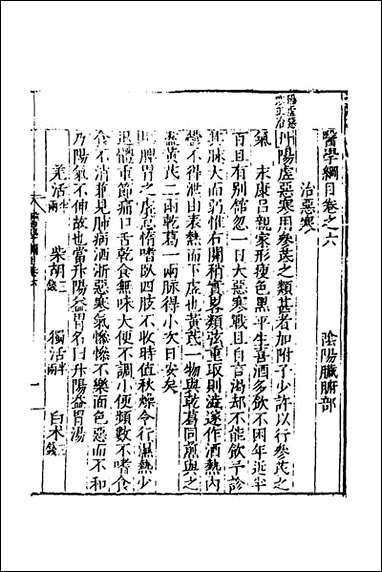 醫學綱目卷之六　陰陽臟腑部
治惡寒
陽虛惡寒用參芪之類甚者加附子少許以行參芪之
氣　永康呂親家形瘦色黑平生喜酒多飲不困年近半
百且有別館忽一日大惡寒戰且自言渴却不能飲予診
其脉大而弱惟右關稍實畧類弦重取則澁遂作酒熱內
鬱不得泄由表熱而下虛也黃芪一物與乾葛同煎與之
盡黃芪二兩乾葛一兩脉得小次日安矣
脾胃之虛怠惰嗜臥四肢不收時值秋燥令行濕熱少
退體重節痛口舌乾食無味大便不調小便頻數不嗜食
食不消兼見肺病洒淅惡寒氣慘慘不樂面色惡而不和
乃陽氣不伸故也當升陽益胃名曰升陽益胃湯
羌活半兩　柴胡三錢　獨活半兩　白朮三錢